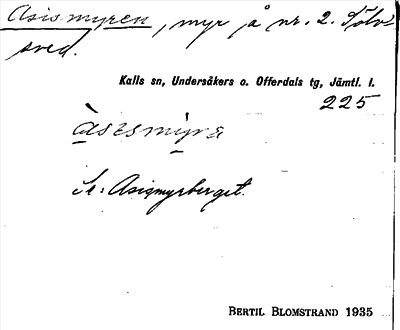 Asismyren, myr å nr. 2. Sölv-
sved.
Kalls sn, Undersåkers o. Offerdals tg, Jämtl. l.
225
àsesmyra
Se: Asismyrberget.
BERTIL BLOMSTRAND 1935